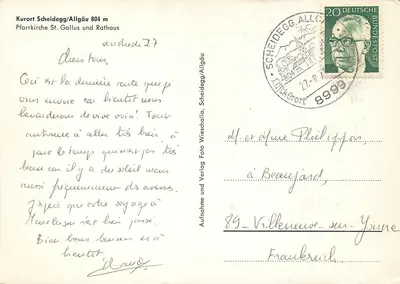 Kurort Scheidegg/Allgäu 804 m
Pfarrkirche St. Gallus und Rathaus
27
Chers tous,
Ceci est la dernière carte que je
vous envoie car bientôt nous
de vive voix! Tout
continue à aller très bien à
part le temps qui n'est pas très
beau car il y a du soleil mais
aussi fréquemment des averses.
J'espère que votre voyage à
s'est bien passé.
Bien bons baisers et à
bientôt
Aufnahme und Verlag Foto Wieschalla, Scheidegg/Allgäu
SCHEIDEGG, ALLGÄU
804 m
Luftkurort
8999
20
DEUTSCHE
BUNDESPOST
M. et Mme Philippon,
à Beaujard,
89-Villeneuve-sur-Yonne
Frankreich